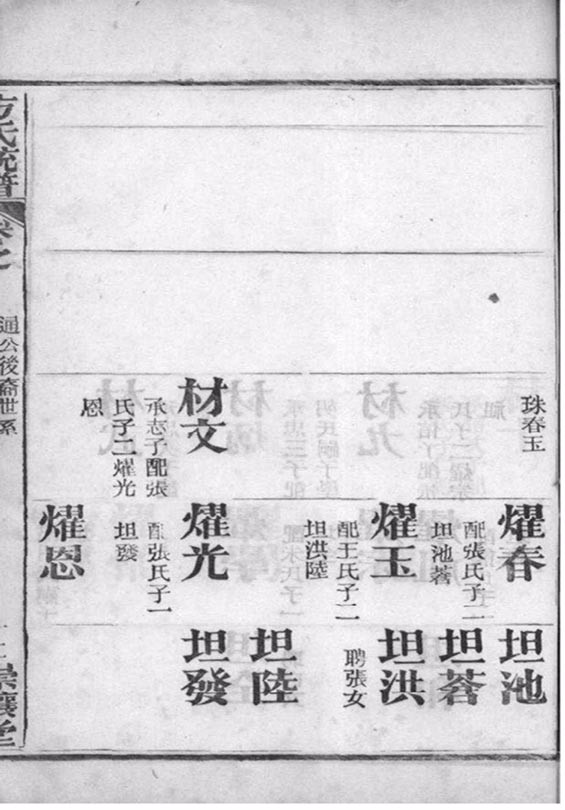 珠春玉
材文
承志子配張
氏子二燿光
恩
燿春
配張氏子二
坦池蒼
燿玉
配王氏子二
坦洪陸
燿光
配張氏子一
坦發
燿恩
坦池
坦蒼
坦洪
聘張女
坦陸
坦發
方氏統譜
卷之
通公後裔世系